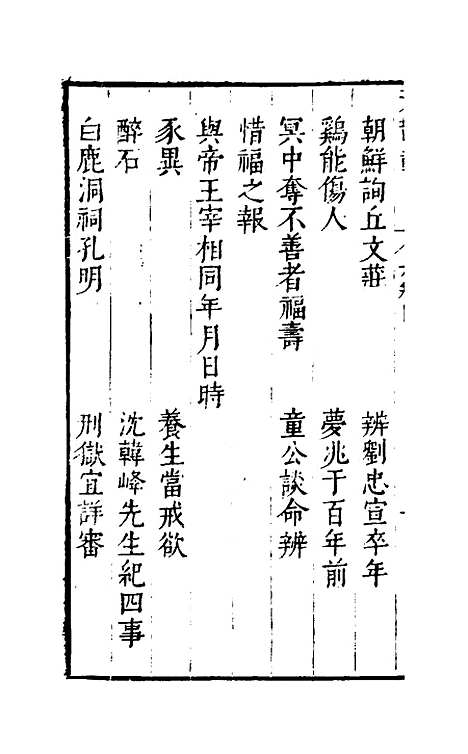 朝鮮詢丘文莊　辨劉忠宣卒年
鷄能傷人　夢兆于百年前
冥中奪不善者福壽　童公談命辨
惜福之報
與帝王宰相同年月日時
豕異　養生當戒欲
醉石　沈韓峰先生紀四事
白鹿洞祠孔明　刑獄宜詳審